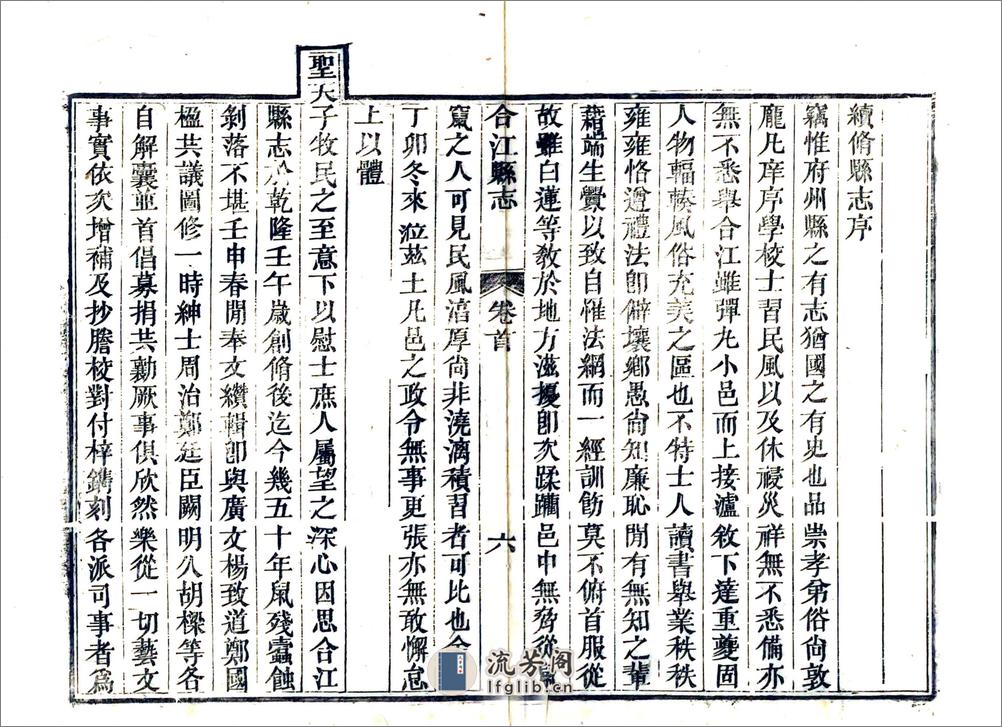 續脩縣志序
竊惟府州縣之有志猶國之有史也品崇孝弟俗尙敦
龐凡庠序學校士習民風以及休祲災祥無不悉備亦
無不悉舉合江雖彈丸小邑而上接瀘敘下達重夔固
人物輻輳風俗充美之區也不特士人讀書舉業秩秩
雍雍恪遵禮法卽僻壤鄉愚尙知廉恥閒有無知之輩
藉端生釁以致自罹法網而一經訓飭莫不俯首服從
故雖白蓮等敎於地方滋擾卽次蹂躪邑中無脅從
合江縣志 卷首 六
竄之人可見民風湻厚尙非澆漓積習者可比也
丁卯冬來涖茲土凡邑之政令無事更張亦無敢懈怠
上以體
聖天子牧民之至意下以慰士庶人屬望之深心因思合江
縣志於乾隆壬午歲創脩後迄今幾五十年鼠殘蠹蝕
剝落不堪壬申春閒奉文纘輯卽與廣文楊致道鄭國
楹共議圖修一時紳士周治鄭廷臣闕明八胡樑等各
自解囊並首倡募捐共勷厥事俱欣然樂從一切藝文
事實依次增補及抄謄校對付梓鐫刻各派司事者爲
流芳閣
lfglib.cn